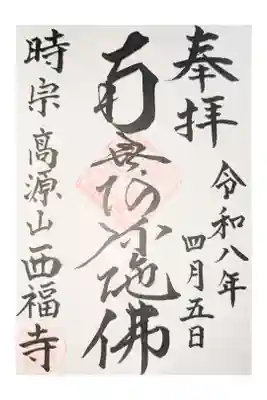 奉拝
令和八年
四月五日
南無阿弥陀佛
時宗 高源山西福寺